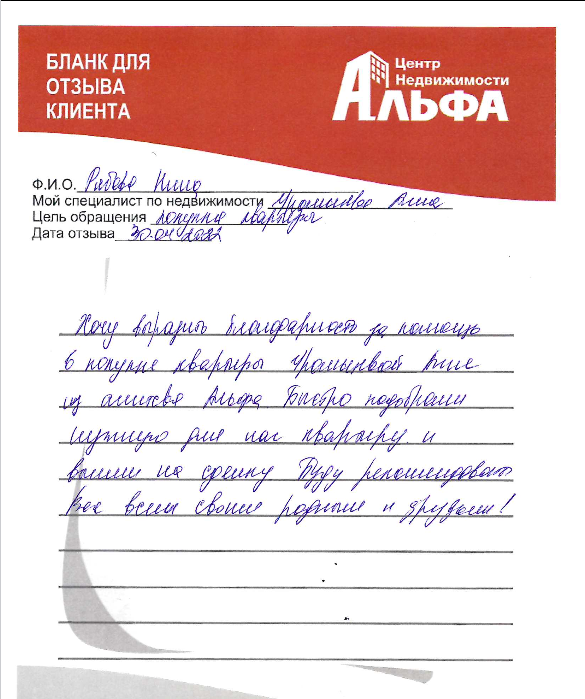 БЛАНК ДЛЯ
ОТЗЫВА
КЛИЕНТА
Центр
Недвижимости
АЛЬФА
Ф.И.О. Нина
Мой специалист по недвижимости Анна
Цель обращения покупка квартиры
Дата отзыва 30.04.2022
Хочу выразить благодарность за помощь
в покупке квартиры Анне
из Альфа Быстро подобрали
нужную для нас квартиру и
вышли на сделку Буду рекомендовать
Вас всем своим родным и друзьям!